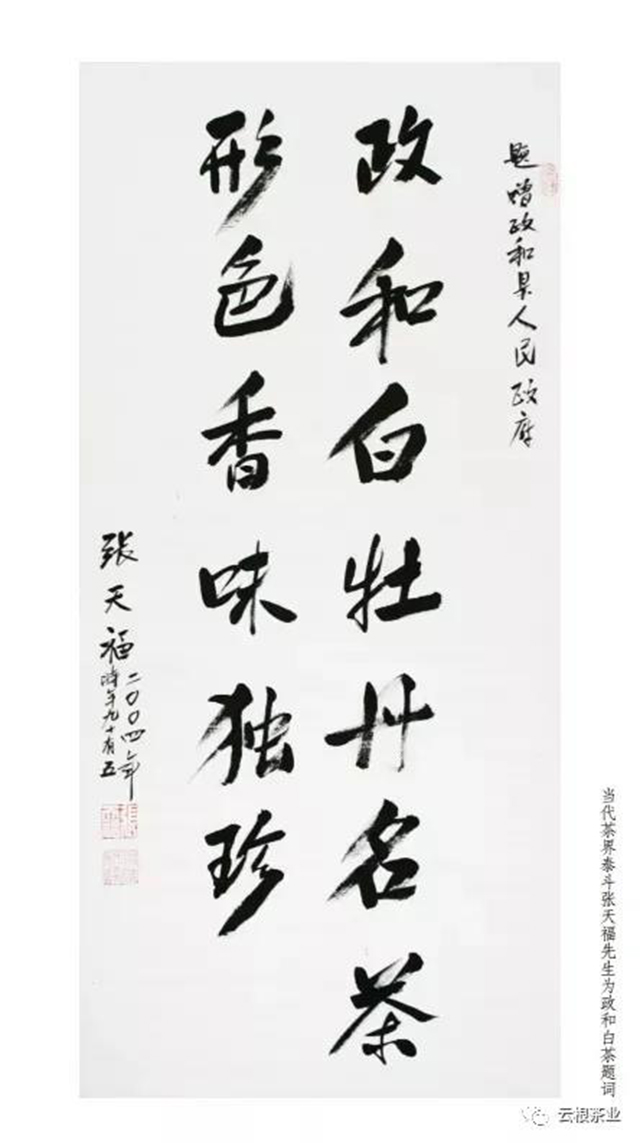 题赠政和县人民政府
政和白牡丹名茶
形色香味独珍
张天福
二〇〇四年
时年九十有五
当代茶界泰斗张天福先生为政和白茶题词
云根茶业